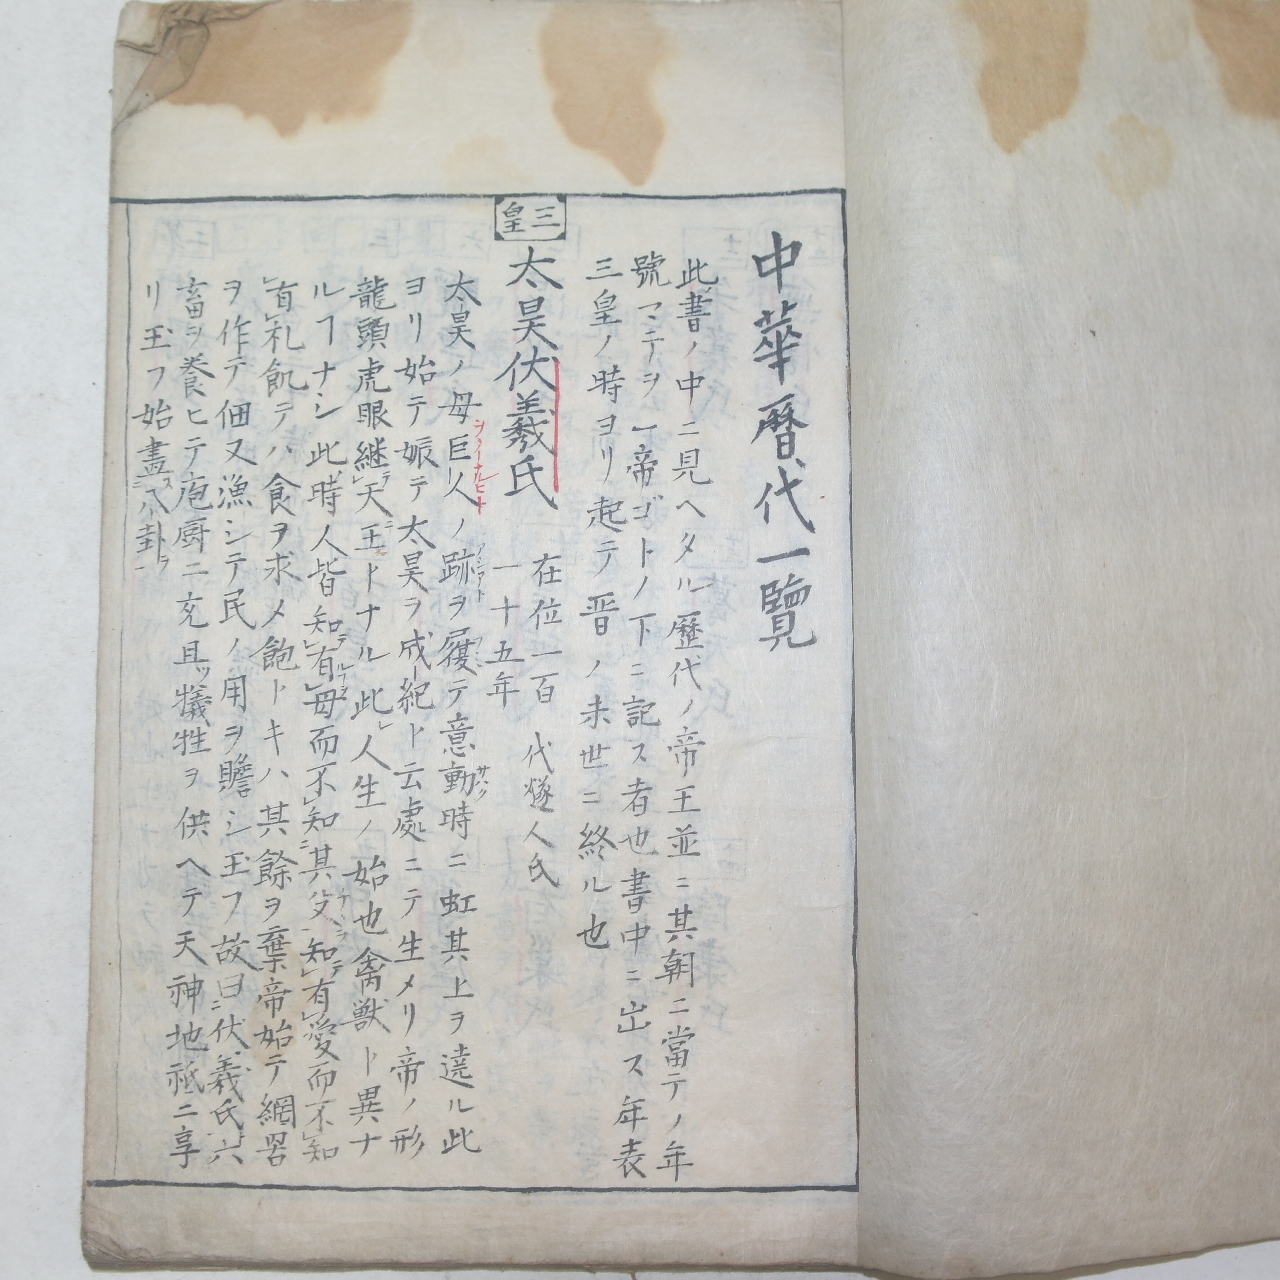 中華曆代一覽
此書ノ中ニ見ヘタル歷代ノ帝王並ニ其朝ニ當テノ年
號マテヲ一帝ゴトノ下ニ記ス者也書中ニ出ス年表
三皇ノ時ヨリ起テ晋ノ末世ニ終ル也
三皇
太昊伏羲氏
在位一百
一十五年
代燧人氏
太昊ノ母巨人ノ跡ヲ履テ意動時ニ虹其上ヲ遶ル此
ヨリ始テ娠テ太昊ヲ成紀ト云處ニテ生メリ帝ノ形
龍頭虎眼継天王トナル此人生ノ始也禽獣ト異ナ
ルフナシ此時人皆知有母而不知其父知有愛而不知
有礼飢テハ食ヲ求メ飽トキハ其餘ヲ棄帝始テ網罟
ヲ作テ佃又漁シテ民ノ用ヲ贍シ玉フ故曰伏羲氏六
畜ヲ養ヒテ庖厨ニ充且犠牲ヲ供ヘテ天神地祇ニ享
リ玉フ始畫八卦